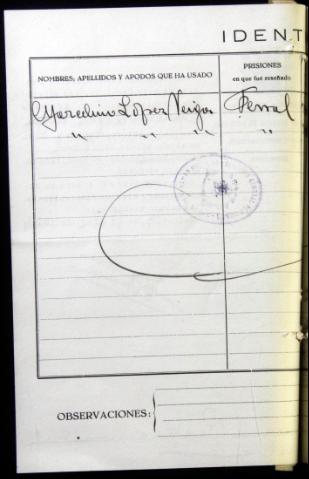 IDENT
NOMBRES, APELLIDOS Y APODOS QUE HA USADO
PRISIONES
en que fué reseñado
López Veiga Ferrol
" " " "
OBSERVACIONES: